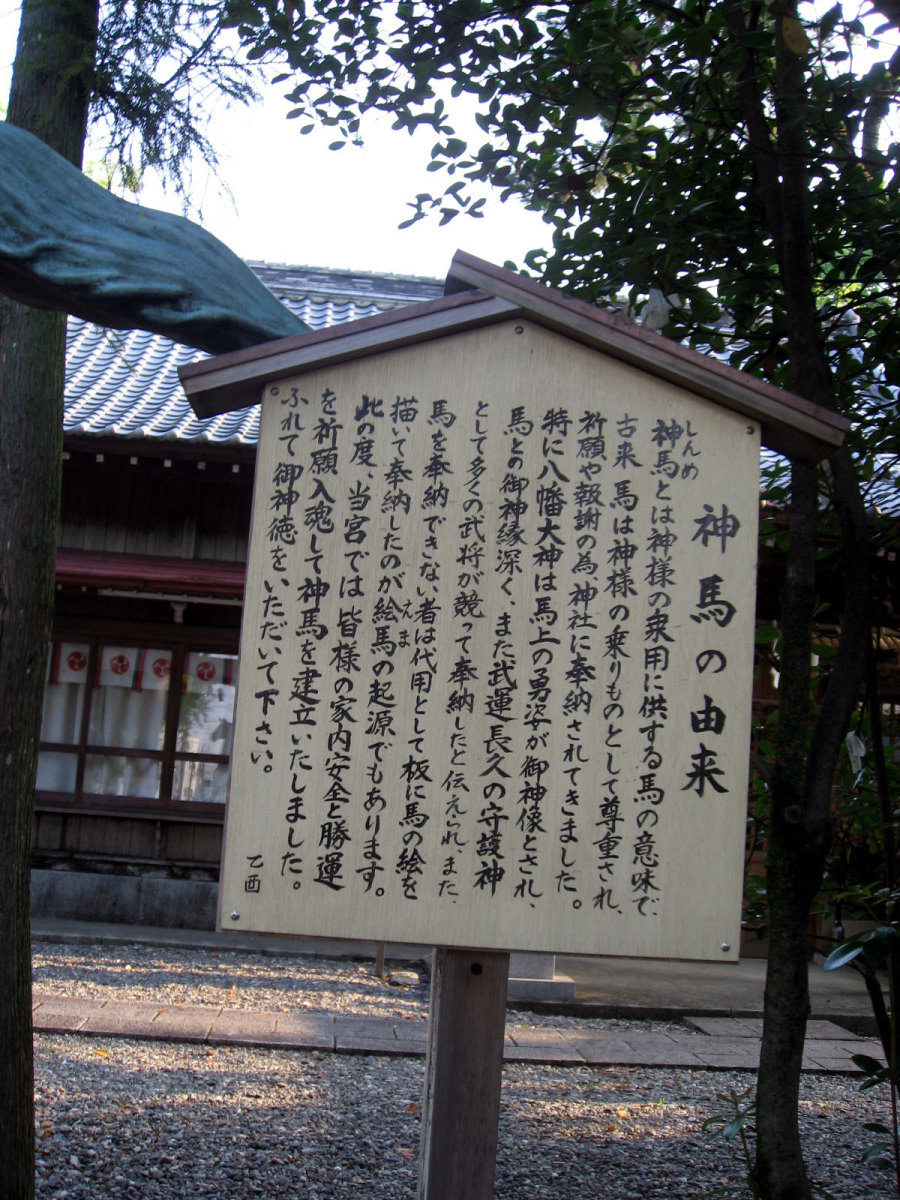 神馬の由来
しんめ
神馬とは神様の乗用に供する馬の意味で、
古来、馬は神様の乗りものとして尊重され、
祈願や報謝の為、神社に奉納されてきました。
特に八幡大神は馬上の勇姿が御神像とされ、
馬との御神縁深く、また武運長久の守護神
として多くの武将が競って奉納したと伝えられ、また、
馬を奉納できない者は代用として板に馬の絵を
描いて奉納したのが絵馬の起源でもあります。
えま
此の度、当宮では皆様の家内安全と勝運
を祈願入魂して神馬を建立いたしました。
ふれて御神徳をいただいて下さい。
乙酉